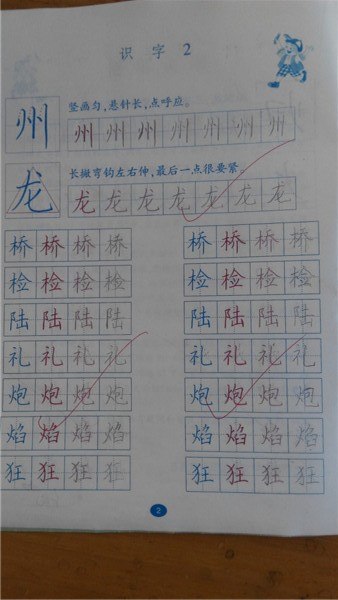 识字2
州
竖画匀,悬针长,点呼应。
州州州州州州州
龙
长撇弯钩左右伸,最后一点很要紧。
龙龙龙龙龙龙龙
桥桥桥桥 桥桥桥桥
检检检检 检检检检
陆陆陆陆 陆陆陆陆
礼礼礼礼 礼礼礼礼
炮炮炮炮 炮炮炮炮
焰焰焰焰 焰焰焰焰
狂狂狂狂 狂狂狂狂
2